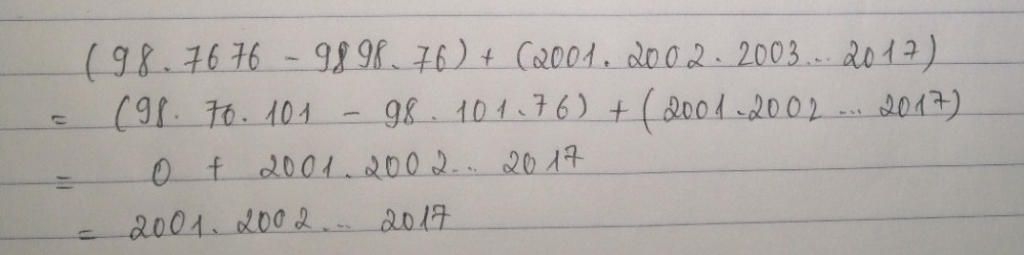 (98.7676 - 9898.76) + (2001.2002.2003...2017)
= (98.76.101 - 98.101.76) + (2001.2002...2017)
= 0 + 2001.2002...2017
= 2001.2002...2017